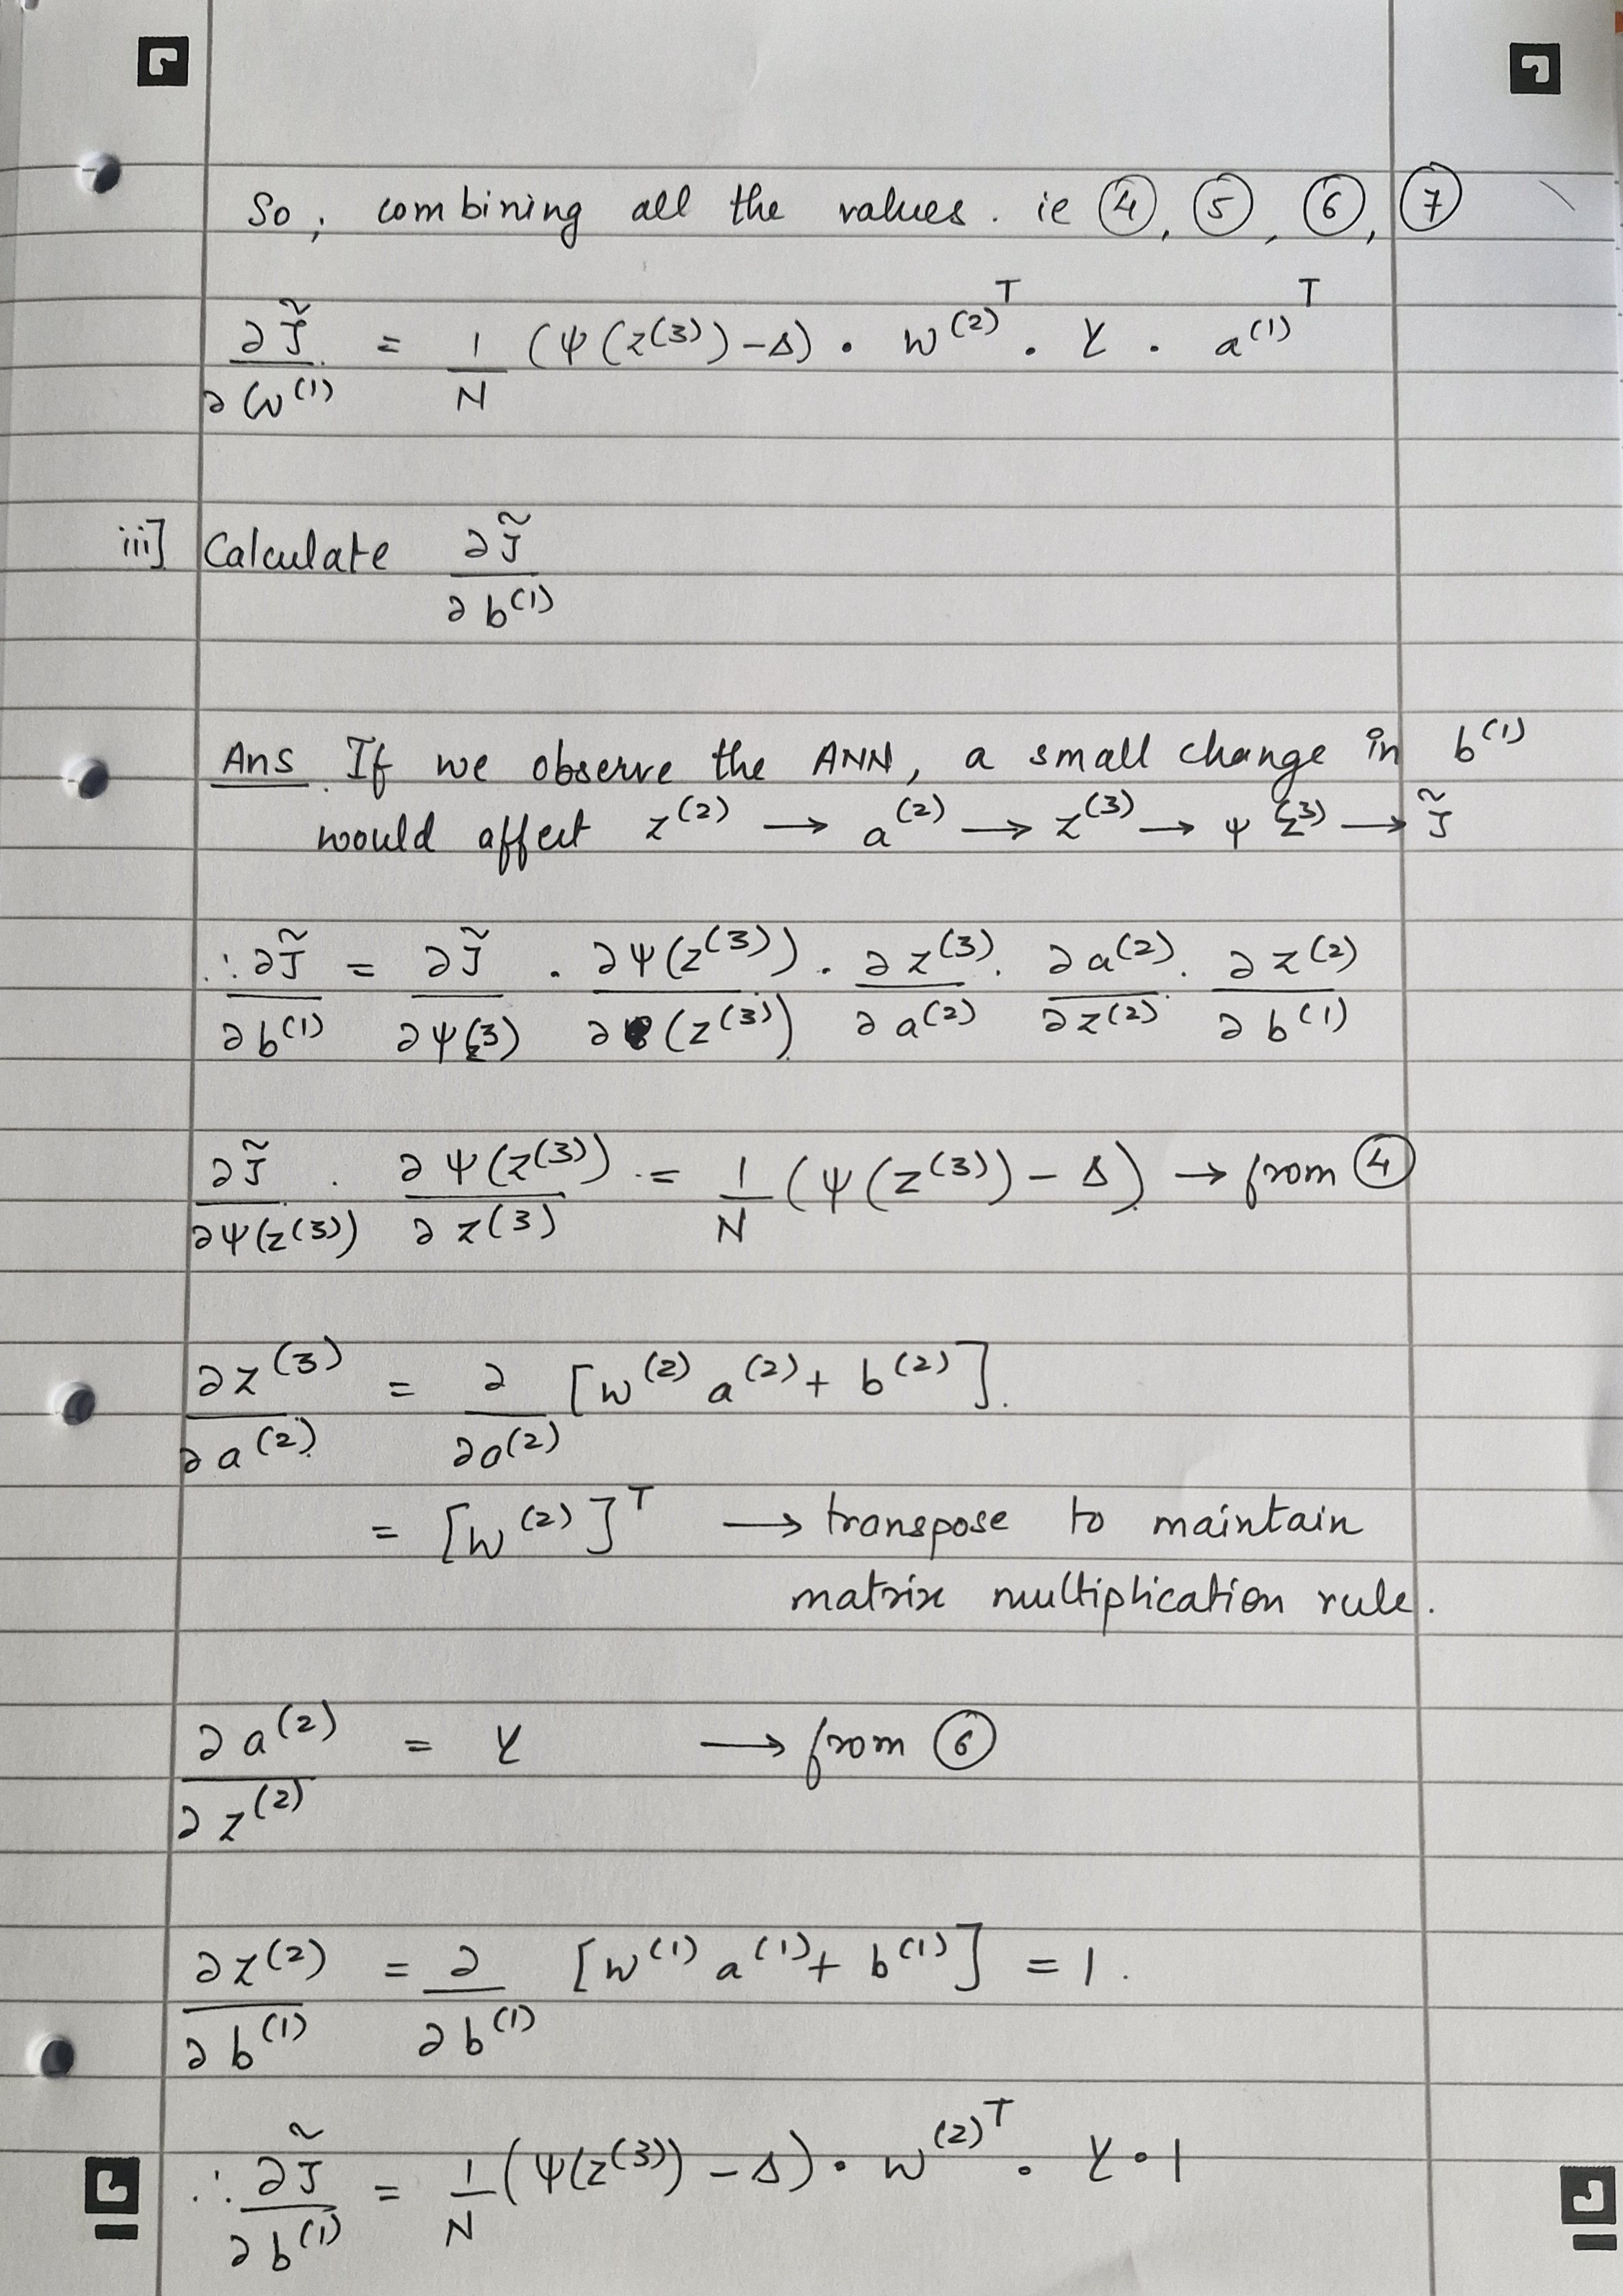 So, combining all the values. ie ④, ⑤, ⑥, ⑦
∂J̃/∂W^(1) = 1/N (ψ(z^(3)) - Δ) · W^(2)^T · γ · a^(1)^T
iii] Calculate ∂J̃/∂b^(1)
Ans. If we observe the ANN, a small change in b^(1)
would affect z^(2) → a^(2) → z^(3) → ψ z^(3) → J̃
∴ ∂J̃/∂b^(1) = ∂J̃/∂ψ(z^(3)) · ∂ψ(z^(3))/∂(z^(3)) · ∂z^(3)/∂a^(2) · ∂a^(2)/∂z^(2) · ∂z^(2)/∂b^(1)
∂J̃/∂ψ(z^(3)) · ∂ψ(z^(3))/∂z^(3) = 1/N (ψ(z^(3)) - Δ) → from ④
∂z^(3)/∂a^(2) = ∂/∂a^(2) [W^(2) a^(2) + b^(2)].
= [W^(2)]^T → transpose to maintain
matrix multiplication rule.
∂a^(2)/∂z^(2) = γ → from ⑥
∂z^(2)/∂b^(1) = ∂/∂b^(1) [W^(1) a^(1) + b^(1)] = 1.
∴ ∂J̃/∂b^(1) = 1/N (ψ(z^(3)) - Δ) · W^(2)^T · γ · 1